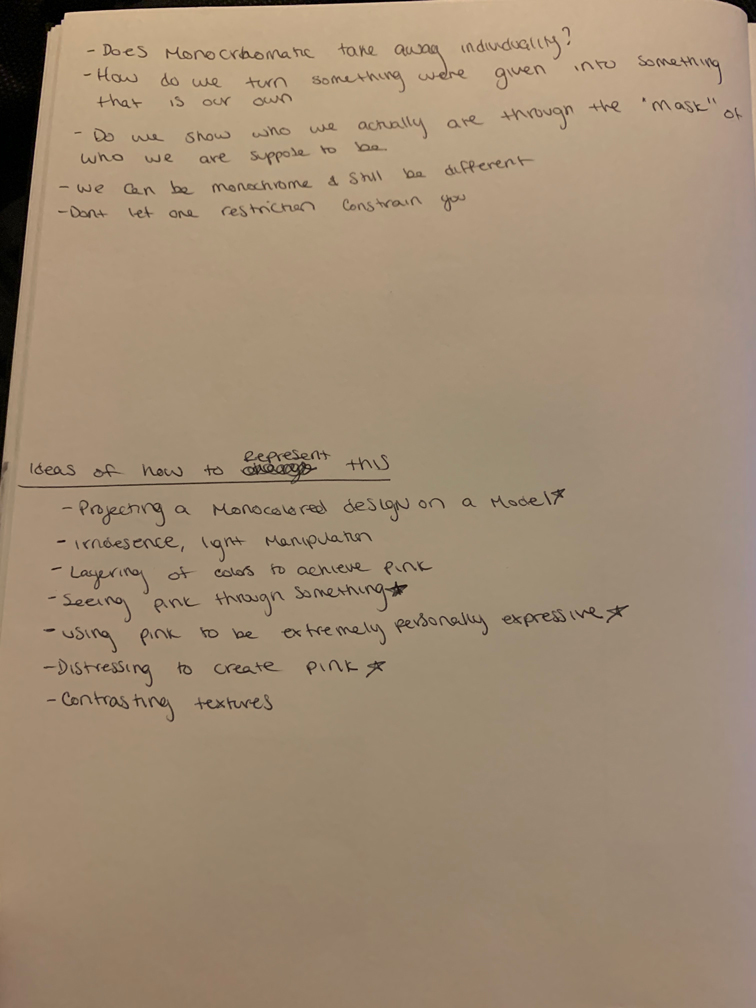 - Does Monocrhomatic take away individuality?
- How do we turn something were given into something
that is our own
- Do we show who we actually are through the "mask" of
who we are suppose to be.
- we can be monochrome & still be different
- Dont let one restriction constrain you
Ideas of how to Represent this
- Projecting a Monocolored design on a Model☆
- irridesence, light Manipulation
- Layering of colors to achieve pink
- Seeing pink through something☆
- using pink to be extremely personally expressive☆
- Distressing to create pink ☆
- Contrasting textures